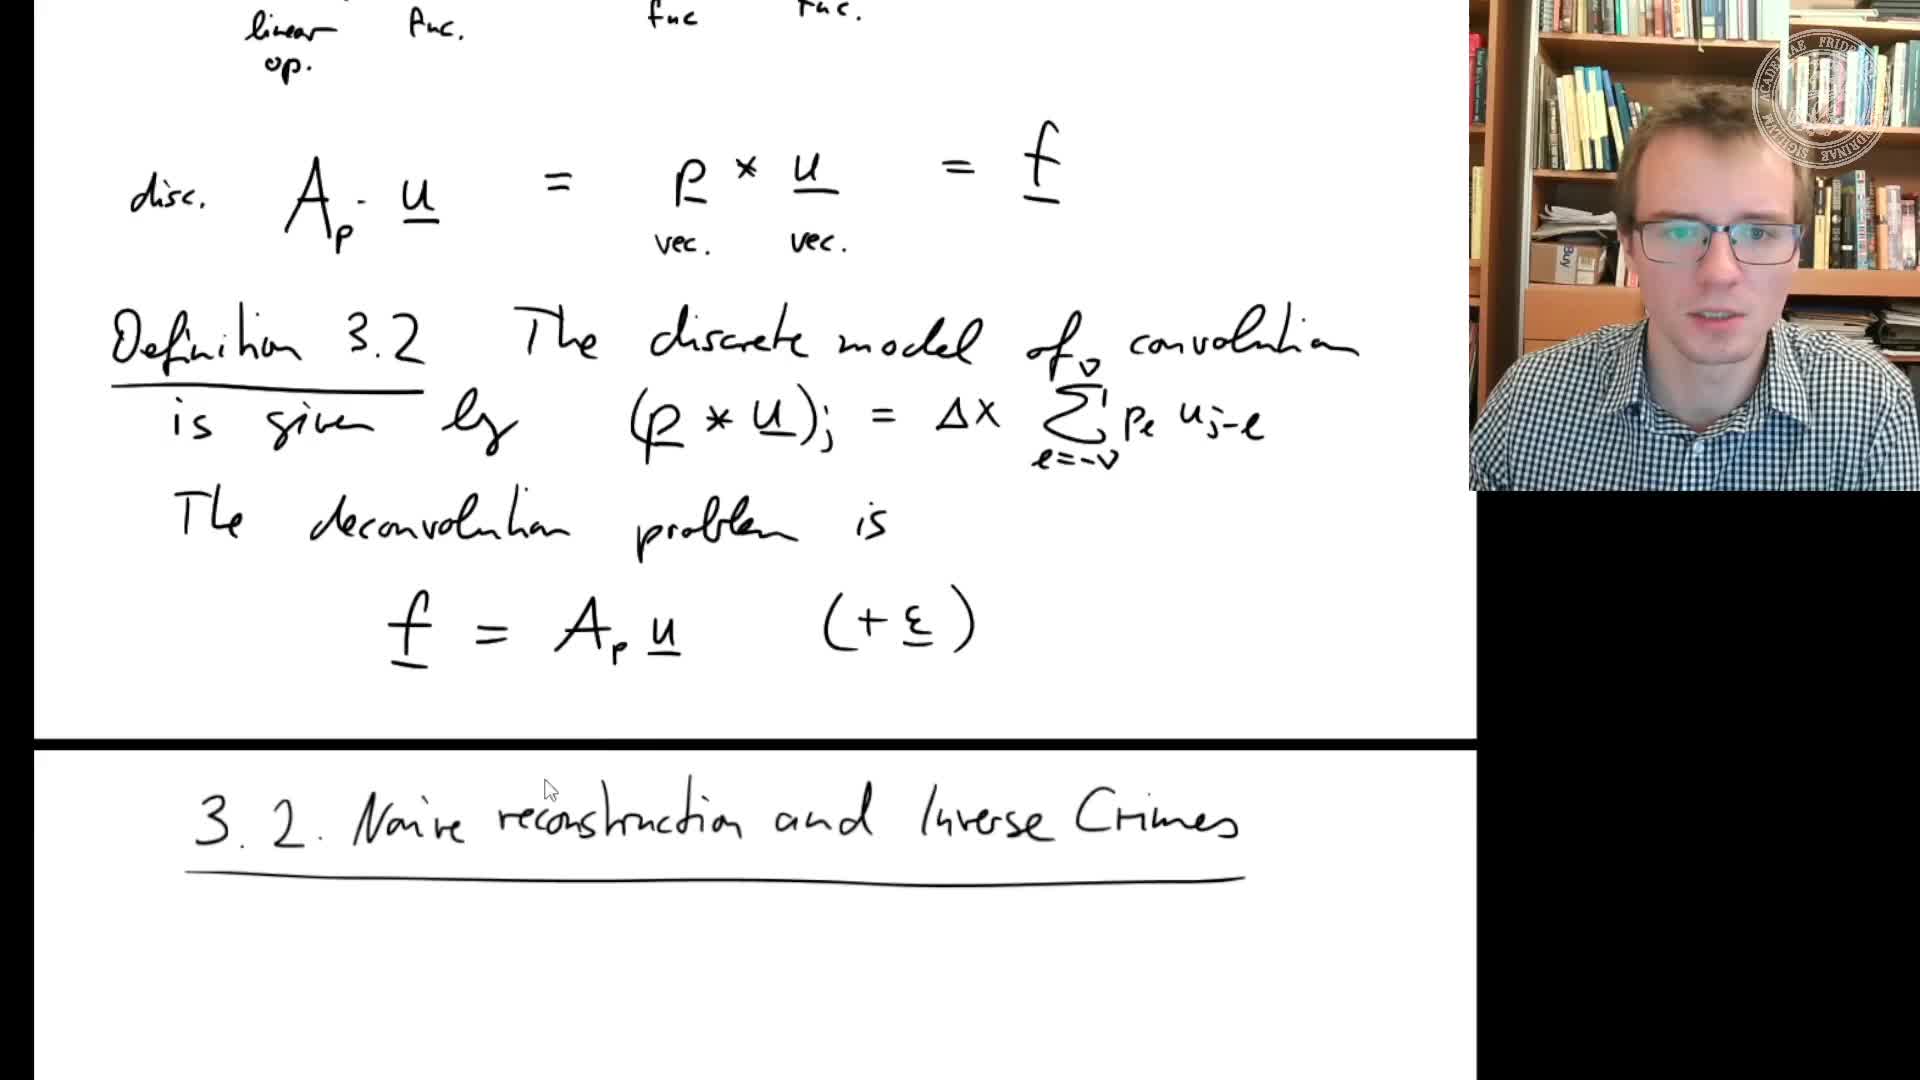 linear func. func func.
op.
disc. A_p · u = p * u = f
vec. vec.
Definition 3.2 The discrete model of convolution
is given by (p * u)_j = Δx ∑_{ℓ=-ν}^{ν} p_ℓ u_{j-ℓ}
The deconvolution problem is
f = A_p u (+ ε)
3.2. Naive reconstruction and Inverse Crimes
Buy